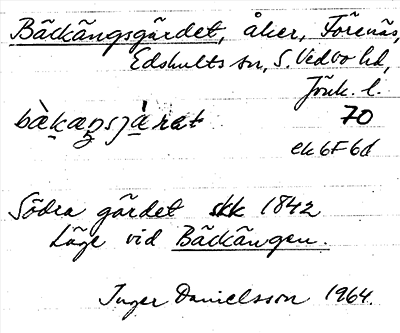 Bäckängsgärdet, åker, Förenäs,
Edshults sn, S. Vedbo hd,
Jönk. l.
bàkaŋsjàrat 70
ek 6F6d
Södra gärdet skk 1842
Läge vid Bäckängen.
Inger Danielsson 1964.